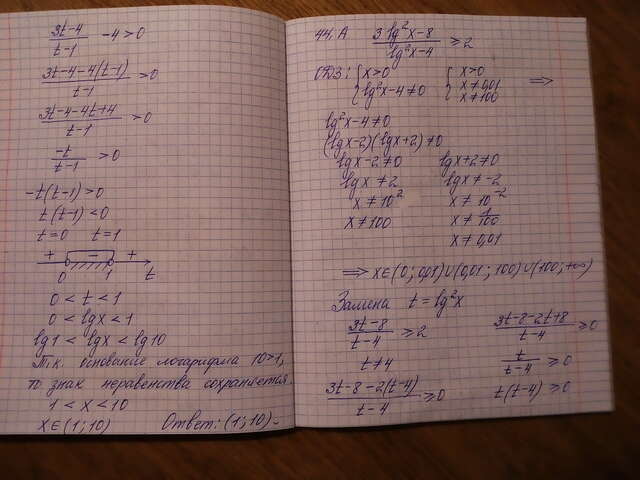 (3t-4)/(t-1) -4>0
(3t-4-4(t-1))/(t-1) >0
(3t-4-4t+4)/(t-1) >0
(-t)/(t-1) >0
-t(t-1)>0
t(t-1)<0
t=0 t=1
+ - +
0 1 t
0<t<1
0<lgx<1
lg1<lgx<lg10
Т.к. основание логарифма 10>1,
то знак неравенства сохраняется.
1<x<10
x∈(1;10) Ответ: (1;10).
44. А (3lg²x-8)/(lg²x-4) ≥2
ОДЗ: { x>0 { x>0
lg²x-4≠0 x≠0,01 ⟹
x≠100
lg²x-4≠0
(lgx-2)(lgx+2)≠0
lgx-2≠0 lgx+2≠0
lgx≠2 lgx≠-2
x≠10² x≠10⁻²
x≠100 x≠1/100
x≠0,01
⟹ x∈(0;0,01)∪(0,01;100)∪(100;+∞)
Замена t=lg²x
(3t-8)/(t-4) ≥2 (3t-8-2t+8)/(t-4) ≥0
t≠4 t/(t-4) ≥0
(3t-8-2(t-4))/(t-4) ≥0 t(t-4)≥0